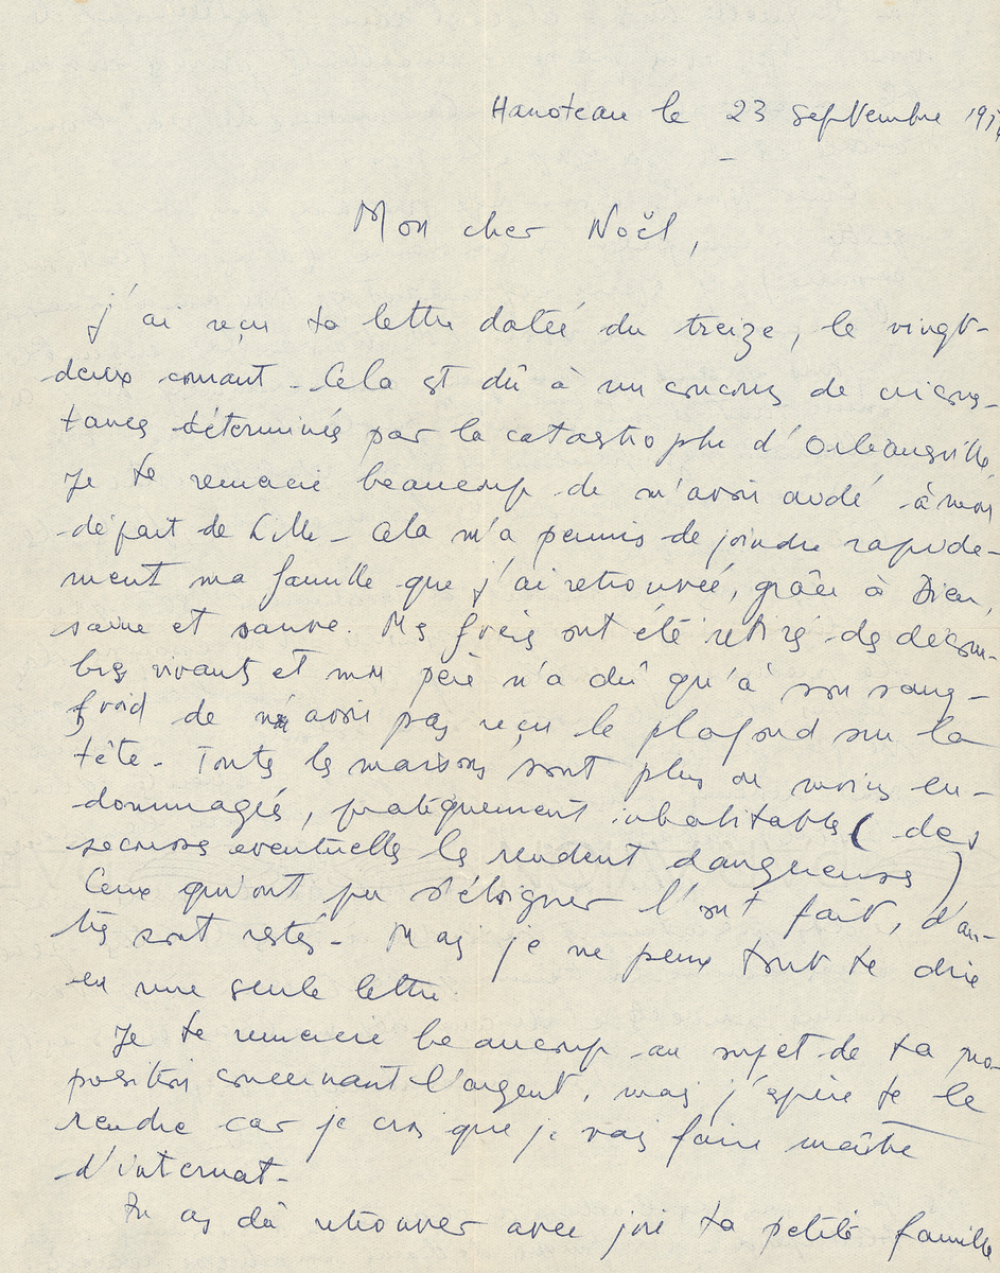 Hanoteau le 23 septembre 1954
Mon cher Noël,
j'ai reçu ta lettre datée du treize, le vingt-
deux courant - Cela est dû à un concours de circons-
tances déterminées par la catastrophe d'Orléansville,
Je te remercie beaucoup de m'avoir aidé à mon
départ de Lille - Cela m'a permis de joindre rapide-
ment ma famille que j'ai retrouvée, grâce à Dieu,
saine et sauve. Mes frères ont été retirés des décom-
bres vivants et mon père n'a dû qu'à son sang-
froid de n'avoir pas reçu le plafond sur la
tête - Toutes les maisons sont plus ou moins en-
dommagées, pratiquement inhabitables (des
secousses éventuelles les rendent dangereuses)
Ceux qui ont pu s'éloigner l'ont fait, d'au-
tres sont restés - Mais je ne peux tout te dire
en une seule lettre.
Je te remercie beaucoup au sujet de ta pro-
position concernant l'argent, mais j'espère te le
rendre car je crois que je vais faire maître
d'internat -
Tu as dû retrouver avec joie ta petite famille